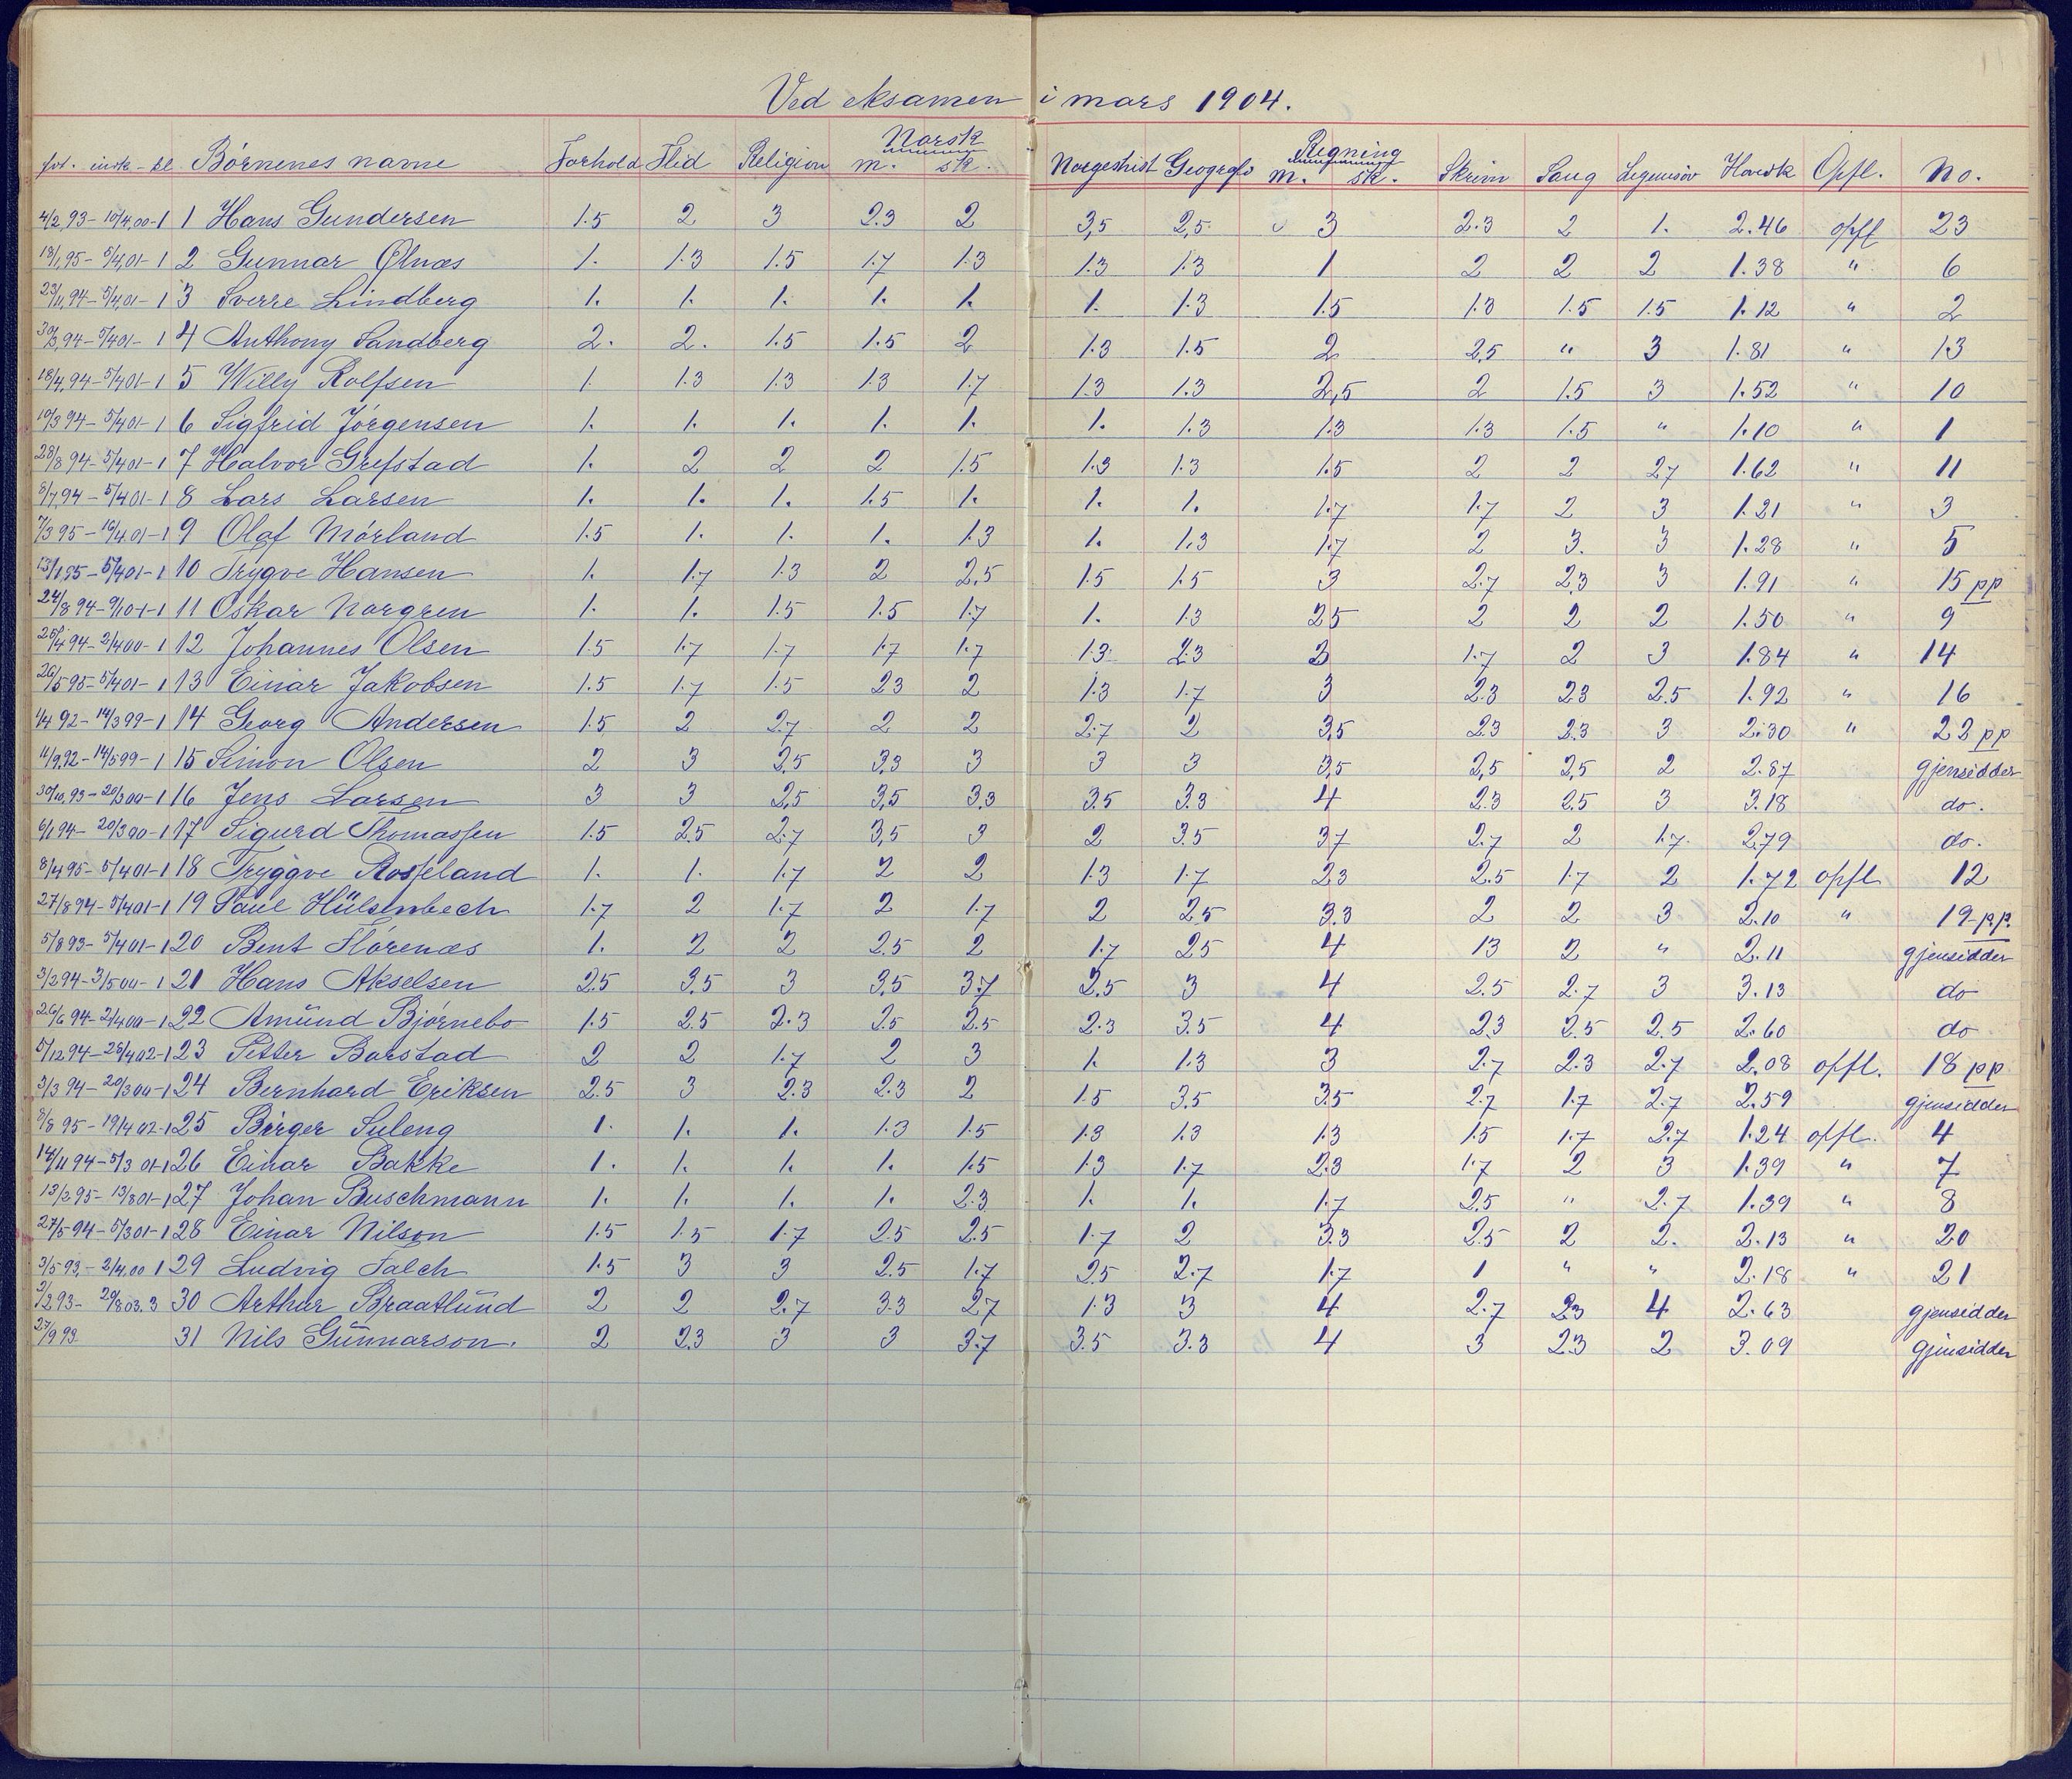 Ved eksamen i mars 1904.
Norsk Regning
føt. insk - kl. Børnenes navne Forhold Flid Religion m. sk. Norgeshist Geografi m. sk. Skrivn Sang Legemsøv Hovedk Opfl. No.
4/2,93 - 10/4,00 - 1 1 Hans Gundersen 1.5 2 3 2.3 2 3,5 2,5 3 2.3 2 1. 2.46 opfl 23
18/1,95 - 5/4,01 - 1 2 Gunnar Ølnæs 1. 1.3 1.5 1.7 1.3 1.3 1.3 1 2 2 2 1.38 " 6
23/11,94 - 5/4,01 - 1 3 Sverre Lindberg 1. 1. 1. 1. 1. 1. 1.3 1.5 1.3 1.5 1.5 1.12 " 2
30/3,94 - 5/4 01 - 1 4 Anthony Sandberg 2. 2. 1.5 1.5 2 1.3 1.5 2 2,5 " 3 1.81 " 13
18/4,94 - 5/4 01 - 1 5 Willy Rolfsen 1. 1.3 1.3 1.3 1.7 1.3 1.3 2,5 2 1.5 3 1.52 " 10
10/3 94 - 5/4 01 - 1 6 Sigfrid Jørgensen 1. 1. 1. 1. 1. 1. 1.3 1.3 1.3 1.5 " 1.10 " 1
28/8 94 - 5/4 01 - 1 7 Halvor Grefstad 1. 2 2 2 1.5 1.3 1.3 1.5 2 2 2.7 1.62 " 11
8/7,94 - 5/4 01 - 1 8 Lars Larsen 1. 1. 1. 1.5 1. 1. 1. 1.7 1.7 2 3 1.21 " 3
7/3 95 - 16/4 01 - 1 9 Olaf Mørland 1.5 1. 1. 1. 1.3 1. 1.3 1.7 2 3. 3 1.28 " 5
13/1,95 - 5/4 01 - 1 10 Trygve Hansen 1. 1.7 1.3 2 2,5 1.5 1.5 3 2.7 2,3 3 1.91 " 15 pp
24/8 94 - 9/10-1-1 11 Oskar Norgren 1. 1. 1.5 1.5 1.7 1. 1.3 2.5 2 2 2 1.50 " 9
25/4 94 - 2/4 00 - 1 12 Johannes Olsen 1.5 1.7 1.7 1.7 1.7 1.3 2.3 3 1.7 2 3 1.84 " 14
26/5 95 - 5/4 01 - 1 13 Einar Jakobsen 1.5 1.7 1.5 2.3 2 1.3 1.7 3 2.3 2.3 2.5 1.92 " 16
1/4 92 - 14/3 99 - 1 14 Georg Andersen 1.5 2 2.7 2 2 2.7 2 3,5 2.3 2.3 3 2.30 " 22 pp
11/9,92 - 14/5 99 - 1 15 Simon Olsen 2 3 2,5 3.3 3 3 3 3,5 2,5 2,5 2 2.87 gjensidder
30/10,93 - 20/3 00 - 1 16 Jens Larsen 3 3 2,5 3,5 3.3 3.5 3.3 4 2.3 2.5 3 3.18 do.
6/1 94 - 20/3 00 - 1 17 Sigurd Thomassen 1.5 2.5 2.7 3,5 3 2 3.5 3.7 2.7 2 1.7. 2.79 do.
8/4 95 - 5/4 01 - 1 18 Tryggve Rosseland 1. 1. 1.7 2 2 1.3 1.7 2.3 2.5 1.7 2 1.72 opfl 12
27/8 94 - 5/4 01 - 1 19 Paul Hülsenbech 1.7 2 1.7 2 1.7 2 2.5 3.3 2 2 3 2.10 " 19 p.p.
5/8 93 - 5/4 01 - 1 20 Bent Flørenæs 1. 2 2 2.5 2 1.7 2.5 4 1.3 2 " 2.11 gjensidder
3/2 94 - 3/5 00 - 1 21 Hans Akselsen 2.5 3.5 3 3,5 3.7 2.5 3 4 2.5 2.7 3 3.13 do
26/6 94 - 2/4 00 - 1 22 Amünd Bjørnebo 1.5 2.5 2.3 2.5 2.5 2.3 3.5 4 2.3 2.5 2.5 2.60 do
5/12 94 - 28/4 02 - 1 23 Petter Barstad 2 2 1.7 2 3 1. 1.3 3 2.7 2.3 2.7 2,08 opfl. 18 pp
3/3 94 - 20/3 00 - 1 24 Bernhard Eriksen 2.5 3 2.3 2.3 2 1.5 3.5 3.5 2.7 1.7 2.7 2.59 gjensidder
8/8 95 - 19/4 02 - 1 25 Birger Suleng 1. 1. 1. 1.3 1.5 1.3 1.3 1.3 1.5 1.7 2.7 1.24 opfl. 4
14/11 94 - 5/3 01 - 1 26 Einar Bakke 1. 1. 1. 1. 1.5 1.3 1.7 2.3 1.7 2 3 1.39 " 7
13/2 95 - 13/8 01 - 1 27 Johan Buschmann 1. 1. 1. 1. 2.3 1. 1. 1.7 2.5 " 2.7 1.39 " 8
27/5 94 - 5/3 01 - 1 28 Einar Nilson 1.5 1.5 1.7 2.5 2.5 1.7 2 3.3 2.5 2 2. 2.13 " 20
3/5 93, - 2/4,00 1 29 Ludvig Falch 1.5 3 3 2.5 1.7 2.5 2.7 1.7 1 " " 2.18 " 21
2/2 93 - 20/8 03. 3 30 Arthur Braatlünd 2 2 2.7 3.3 2.7 1.3 3 4 2.7 2.3 4 2.63 gjensidder
27/9 93 31 Nils Günnarson. 2 2.3 3 3 3.7 3.5 3.3 4 3 2.3 2 3.09 gjensidder